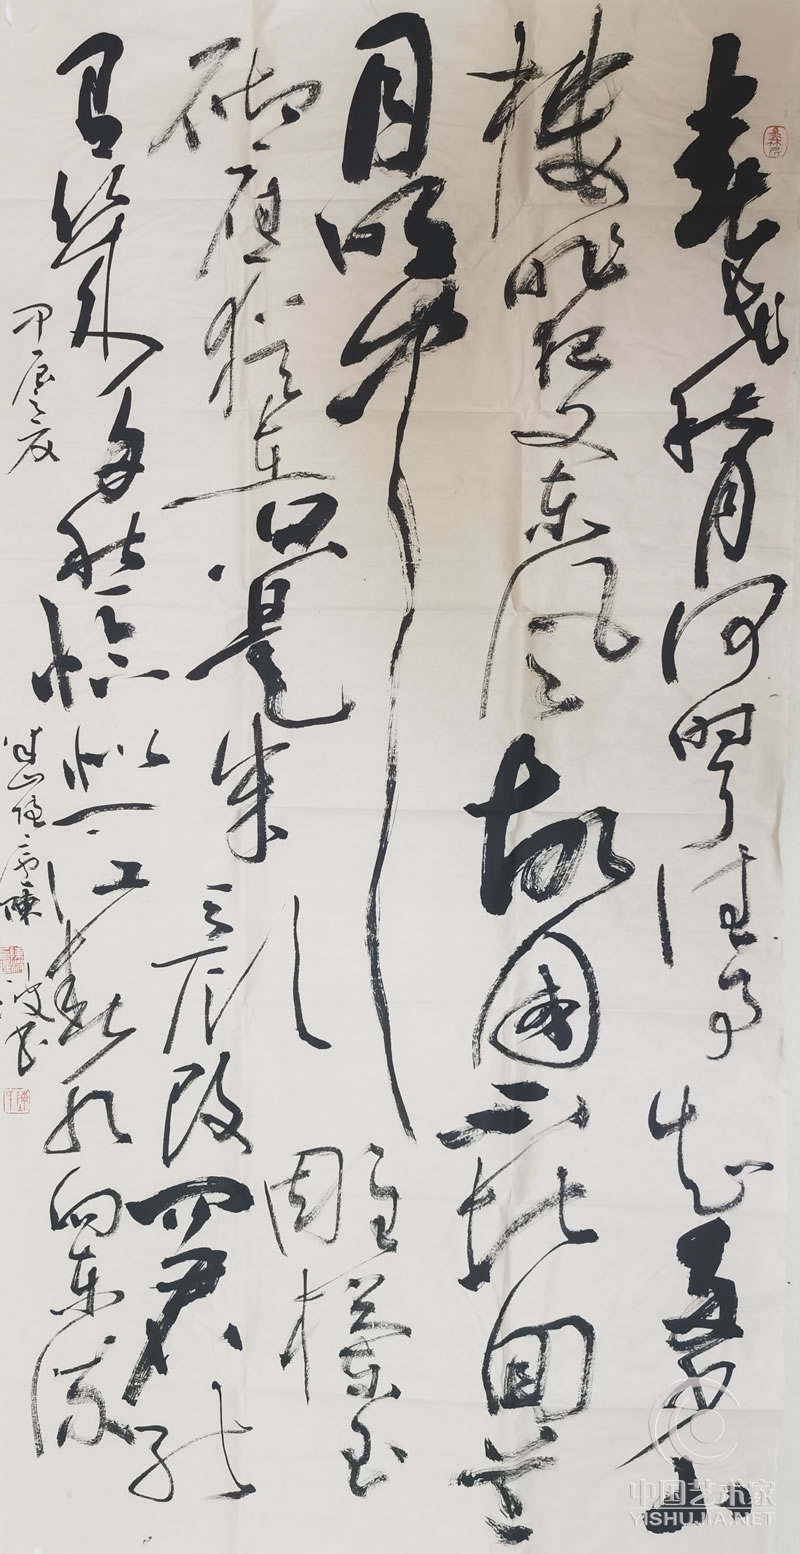 春花秋月何時了往事知多少小
樓昨夜又東风故国不堪回首
月明中雕栏玉
砌应犹在只是朱颜改問君能
有幾多愁恰似一江春水向東流
甲辰夏
陳波书
中国艺术家
YISHUJIA.NET